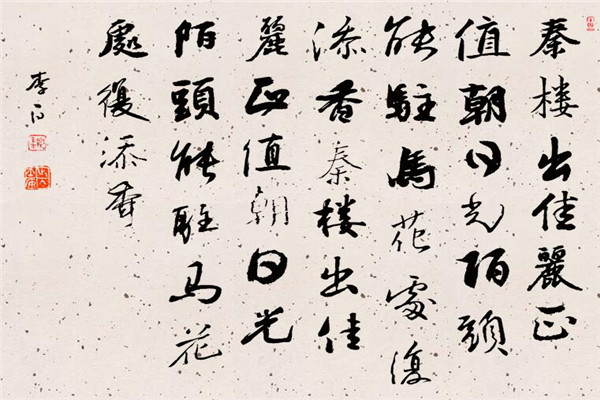 秦楼出佳麗正
值朝日光陌頭
能駐馬花處復
添香秦楼出佳
麗正值朝日光
陌頭能駐马花
處復添香
李白